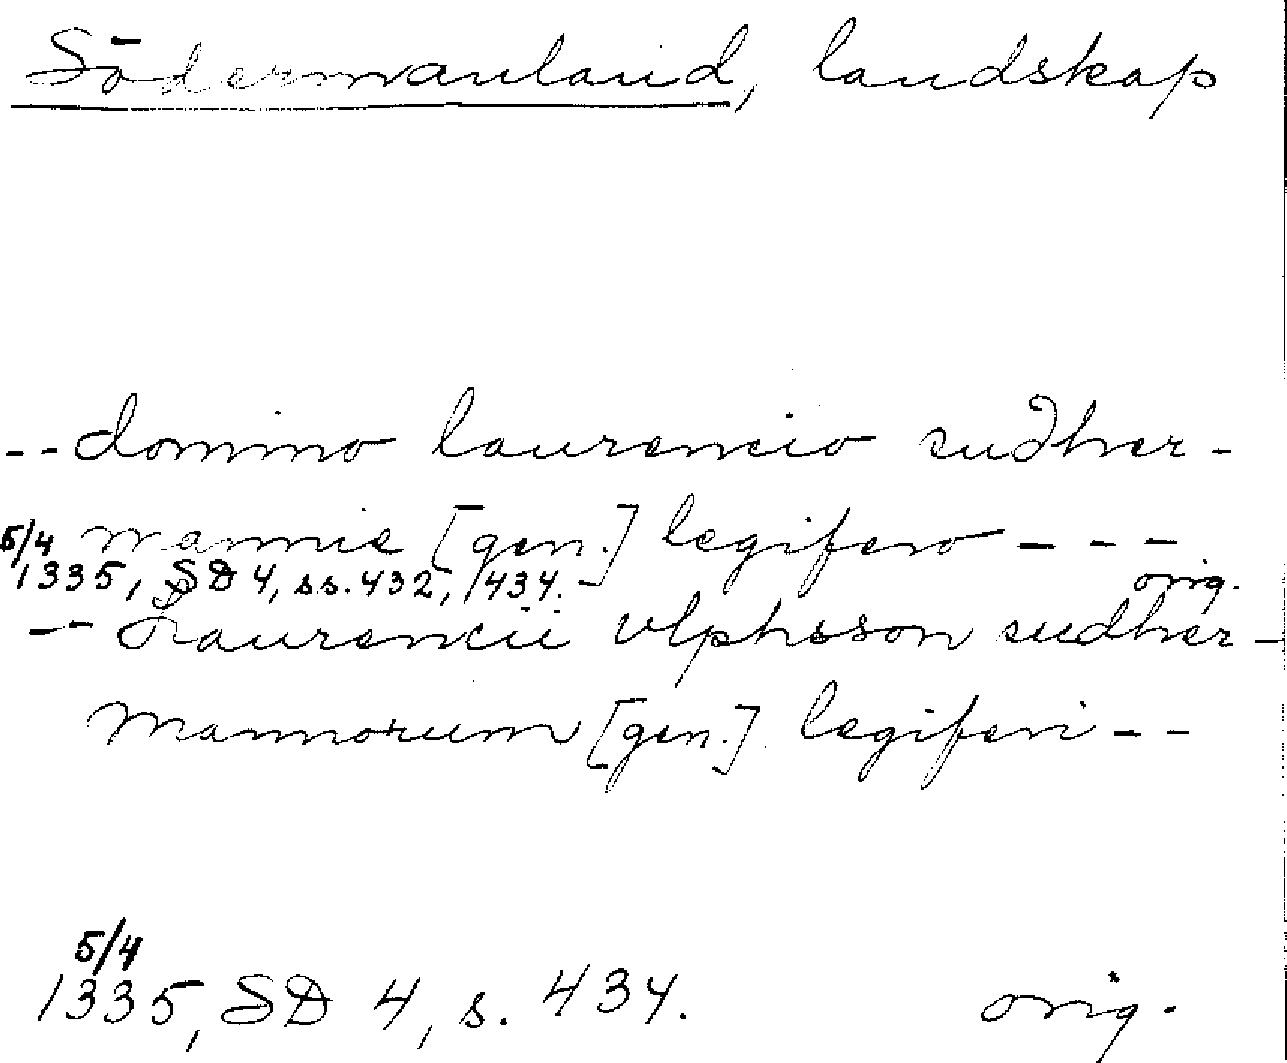 Södermanland, landskap
-- domino laurencio sudher-
mannie [gen.] legifero - - -
5/4 1335, SD 4, ss. 432, 434. orig.
-- Laurencii vlphsson sudher-
mannorum [gen.] legiferi - -
5/4
1335, SD 4, s. 434. orig.